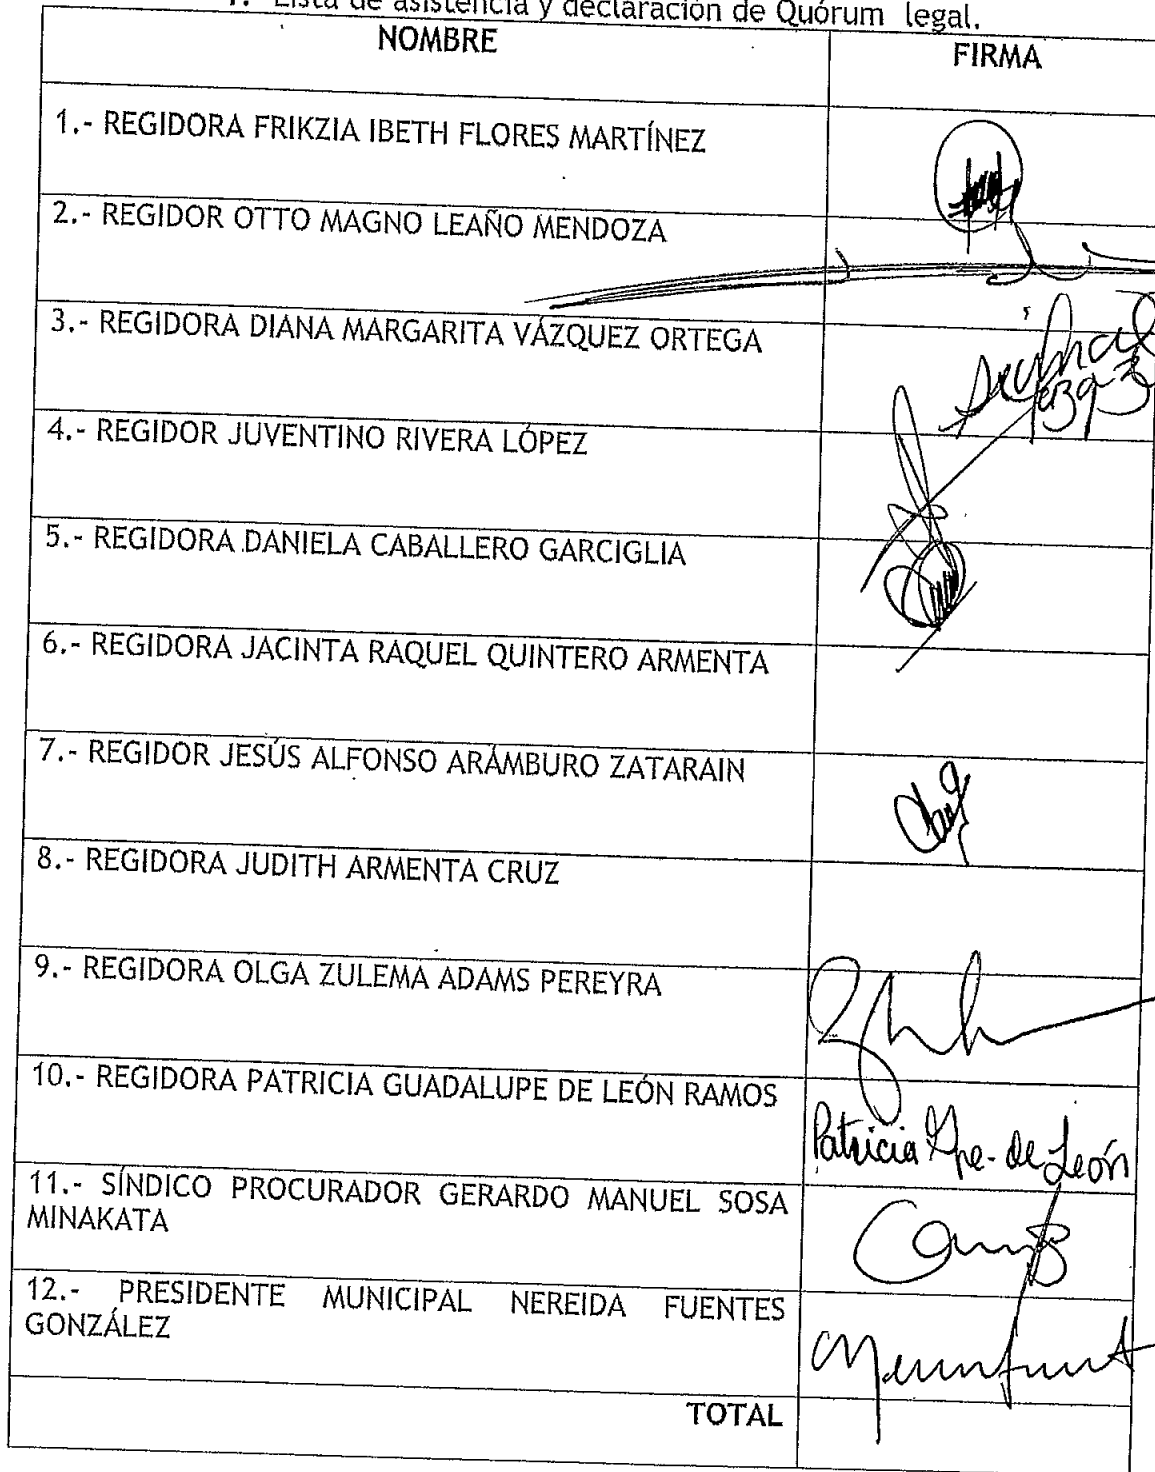 1. Lista de asistencia y declaración de Quórum legal.
NOMBRE
FIRMA
1.- REGIDORA FRIKZIA IBETH FLORES MARTÍNEZ
2.- REGIDOR OTTO MAGNO LEAÑO MENDOZA
3.- REGIDORA DIANA MARGARITA VÁZQUEZ ORTEGA
4.- REGIDOR JUVENTINO RIVERA LÓPEZ
5.- REGIDORA DANIELA CABALLERO GARCIGLIA
6.- REGIDORA JACINTA RAQUEL QUINTERO ARMENTA
7.- REGIDOR JESÚS ALFONSO ARÁMBURO ZATARAIN
8.- REGIDORA JUDITH ARMENTA CRUZ
9.- REGIDORA OLGA ZULEMA ADAMS PEREYRA
10.- REGIDORA PATRICIA GUADALUPE DE LEÓN RAMOS
Patricia Gpe. de León
11.- SÍNDICO PROCURADOR GERARDO MANUEL SOSA
MINAKATA
12.- PRESIDENTE MUNICIPAL NEREIDA FUENTES
GONZÁLEZ
TOTAL